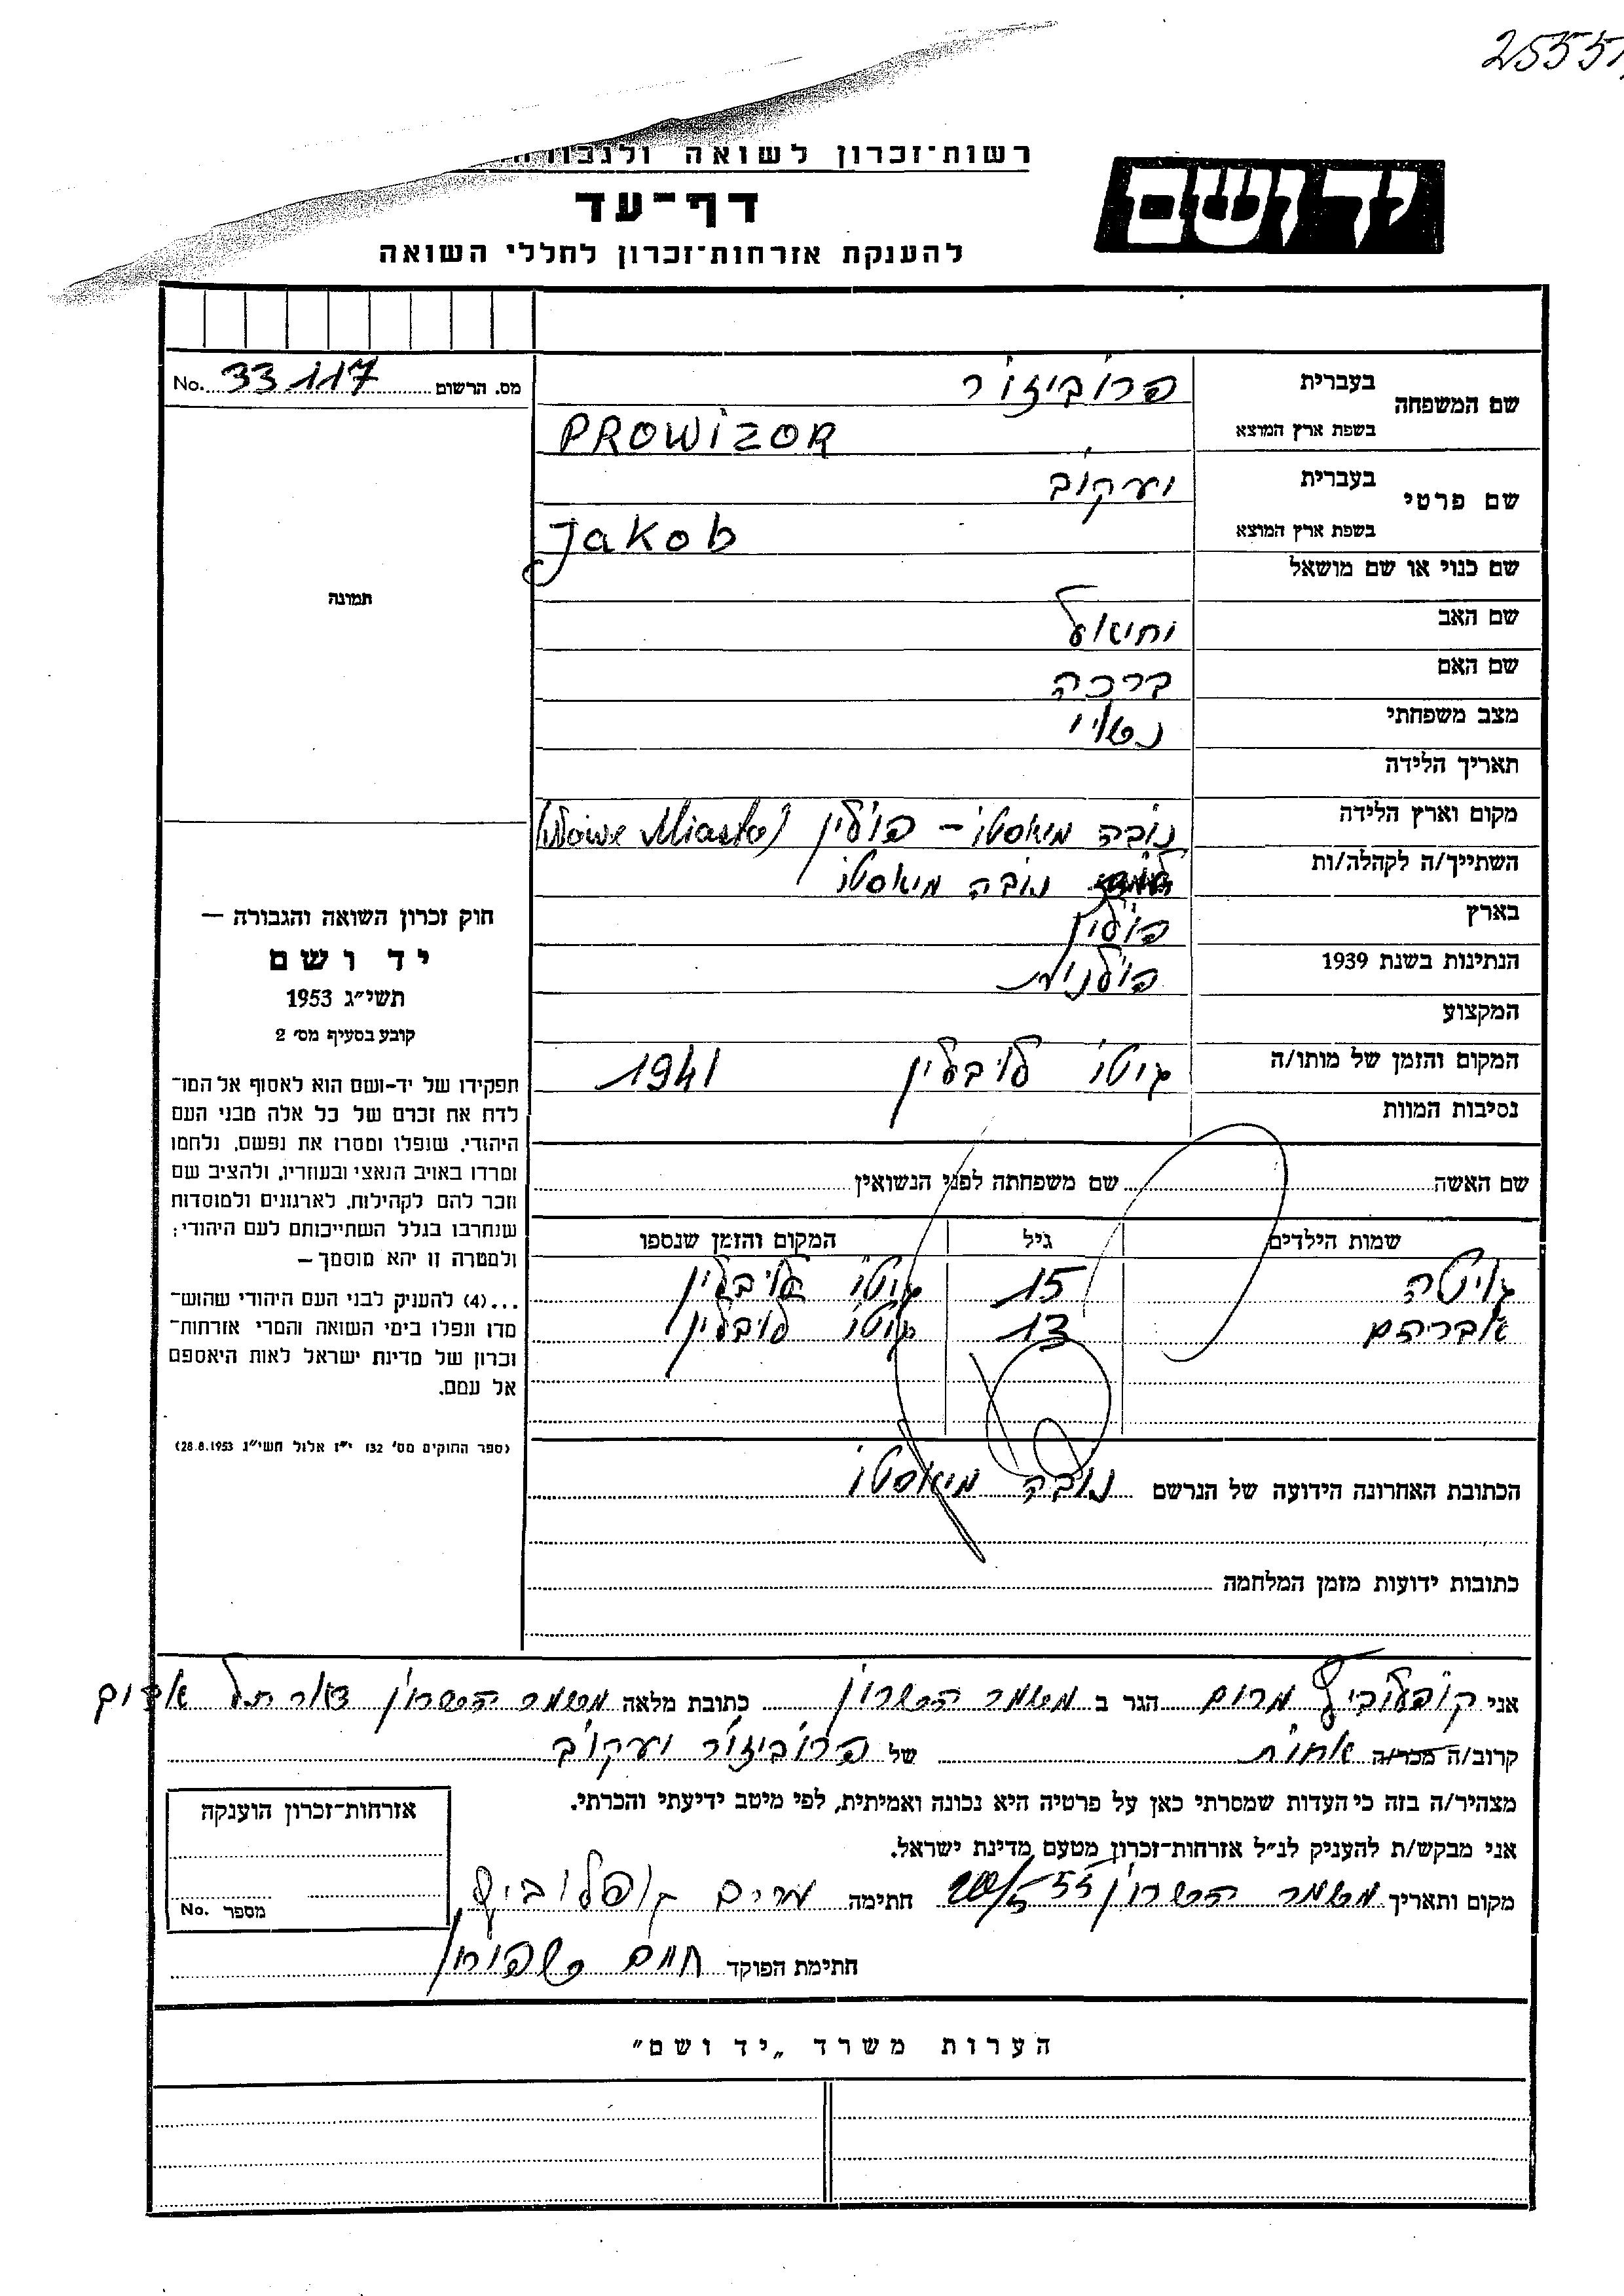 25551
רשות־זכרון לשואה
דף־עד
להענקת אזרחות־זכרון לחללי השואה
יד ושם
מס. הרשום 33117 No.
שם המשפחה
בעברית פרוביזור
בשפת ארץ המוצא PROWIZOR
שם פרטי
בעברית יעקוב
בשפת ארץ המוצא Jakob
שם כנוי או שם מושאל
שם האב יחיאל
שם האם ברכה
מצב משפחתי נשוי
תאריך הלידה
מקום וארץ הלידה נובה מיאסטו – פולין (Nowe Miasto)
השתייך/ה לקהלה/ות נובה מיאסטו
בארץ פולין
הנתינות בשנת 1939 פולנית
המקצוע
המקום והזמן של מותו/ה גיטו לובלין 1941
נסיבות המוות
תמונה
חוק זכרון השואה והגבורה —
יד ושם
תשי״ג 1953
קובע בסעיף מס׳ 2
תפקידו של יד-ושם הוא לאסוף אל המו־
לדת את זכרם של כל אלה מבני העם
היהודי, שנפלו ומסרו את נפשם, נלחמו
ומרדו באויב הנאצי ובעוזריו, ולהציב שם
וזכר להם לקהילות, לארגונים ולמוסדות
שנחרבו בגלל השתייכותם לעם היהודי;
ולמטרה זו יהא מוסמך —
...(4) להעניק לבני העם היהודי שהוש־
מדו ונפלו בימי השואה והמרי אזרחות־
זכרון של מדינת ישראל לאות היאספם
אל עמם.
(ספר החוקים מס׳ 132 י״ז אלול תשי״ג 28.8.1953)
שם האשה שם משפחתה לפני הנשואין
שמות הילדים גיל המקום והזמן שנספו
גיטה 15 גיטו לובלין
אברהם 13 גיטו לובלין
הכתובת האחרונה הידועה של הנרשם נובה מיאסטו
כתובות ידועות מזמן המלחמה
אני קופלוביץ מרים הגר ב משמר השרון כתובת מלאה משמר השרון דאר תל
קרוב/ה מכר/ה אחות של פרוביזור יעקוב
מצהיר/ה בזה כי העדות שמסרתי כאן על פרטיה היא נכונה ואמיתית, לפי מיטב ידיעתי והכרתי.
אני מבקש/ת להעניק לנ״ל אזרחות־זכרון מטעם מדינת ישראל.
מקום ותאריך משמר השרון חתימה מרים קופלוביץ
חתימת הפוקד חיים
אזרחות־זכרון הוענקה
מספר No.
הערות משרד „יד ושם״